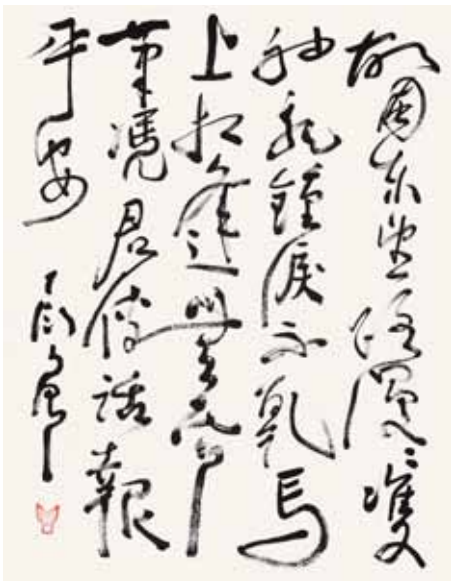 故園东望路漫〻雙
袖龍鍾淚不乾馬
上相逢無紙
筆憑君傳話報
平安